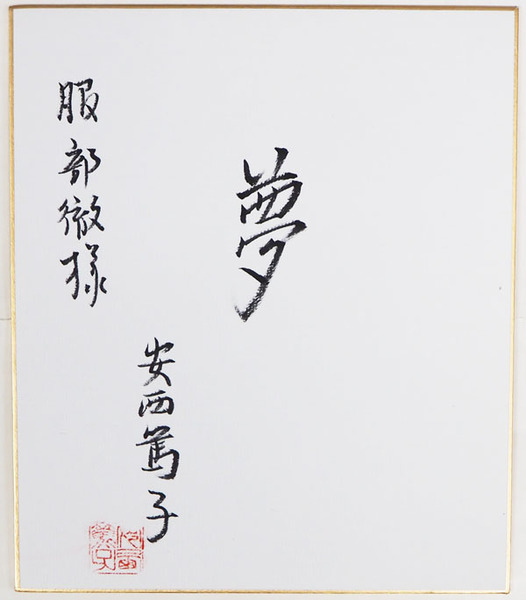 夢
服部徹様
安西篤子